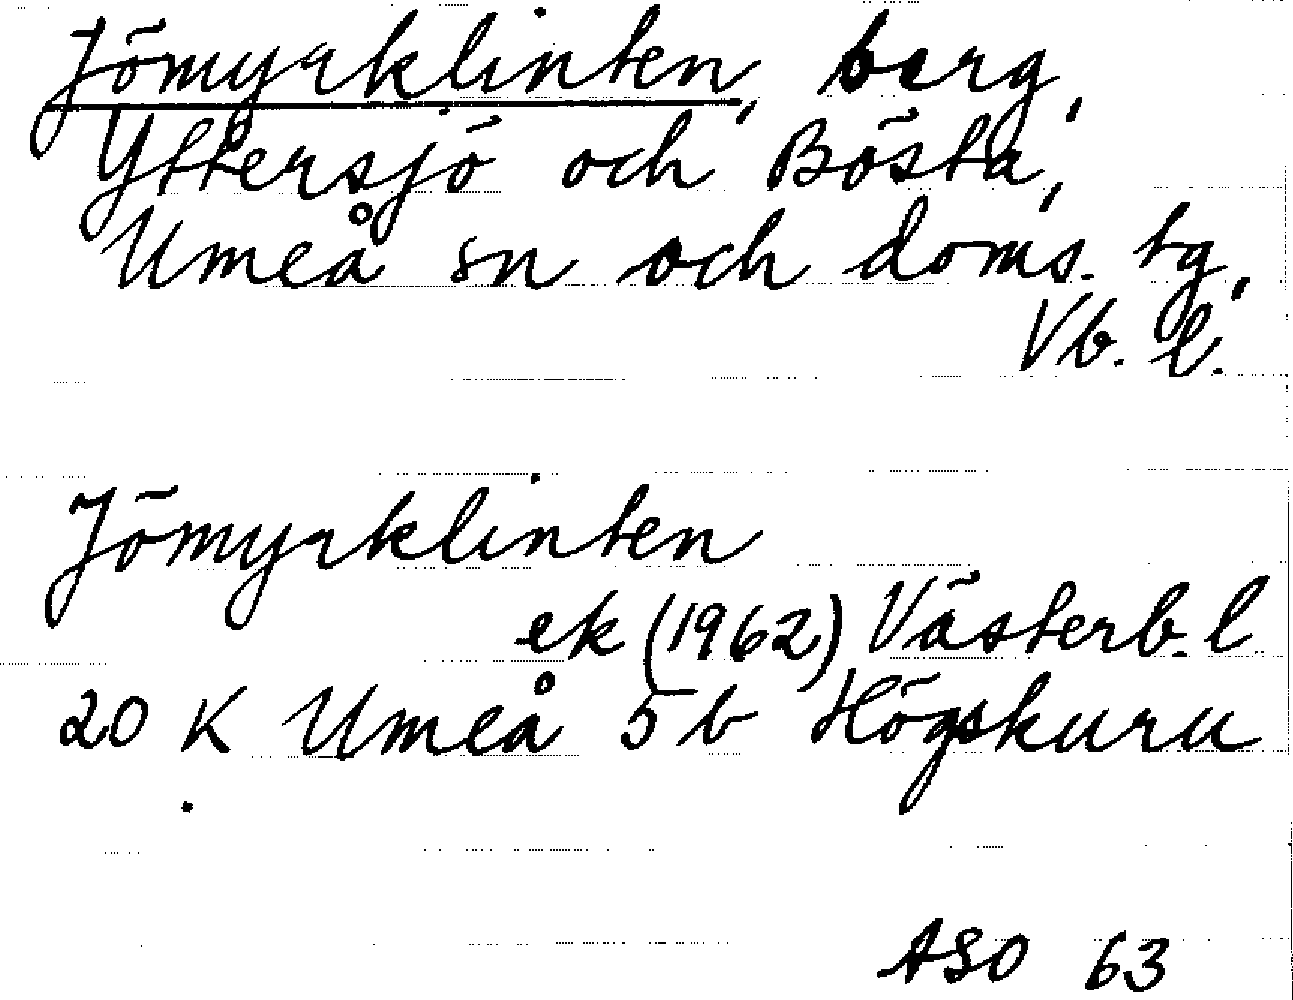 Jömyrklinten, berg,
Yttersjö och Bösta,
Umeå sn och doms. tg,
Vb. l.
Jömyrklinten
ek (1962) Västerb. l
20 K Umeå 5b Högskuru
ASO 63